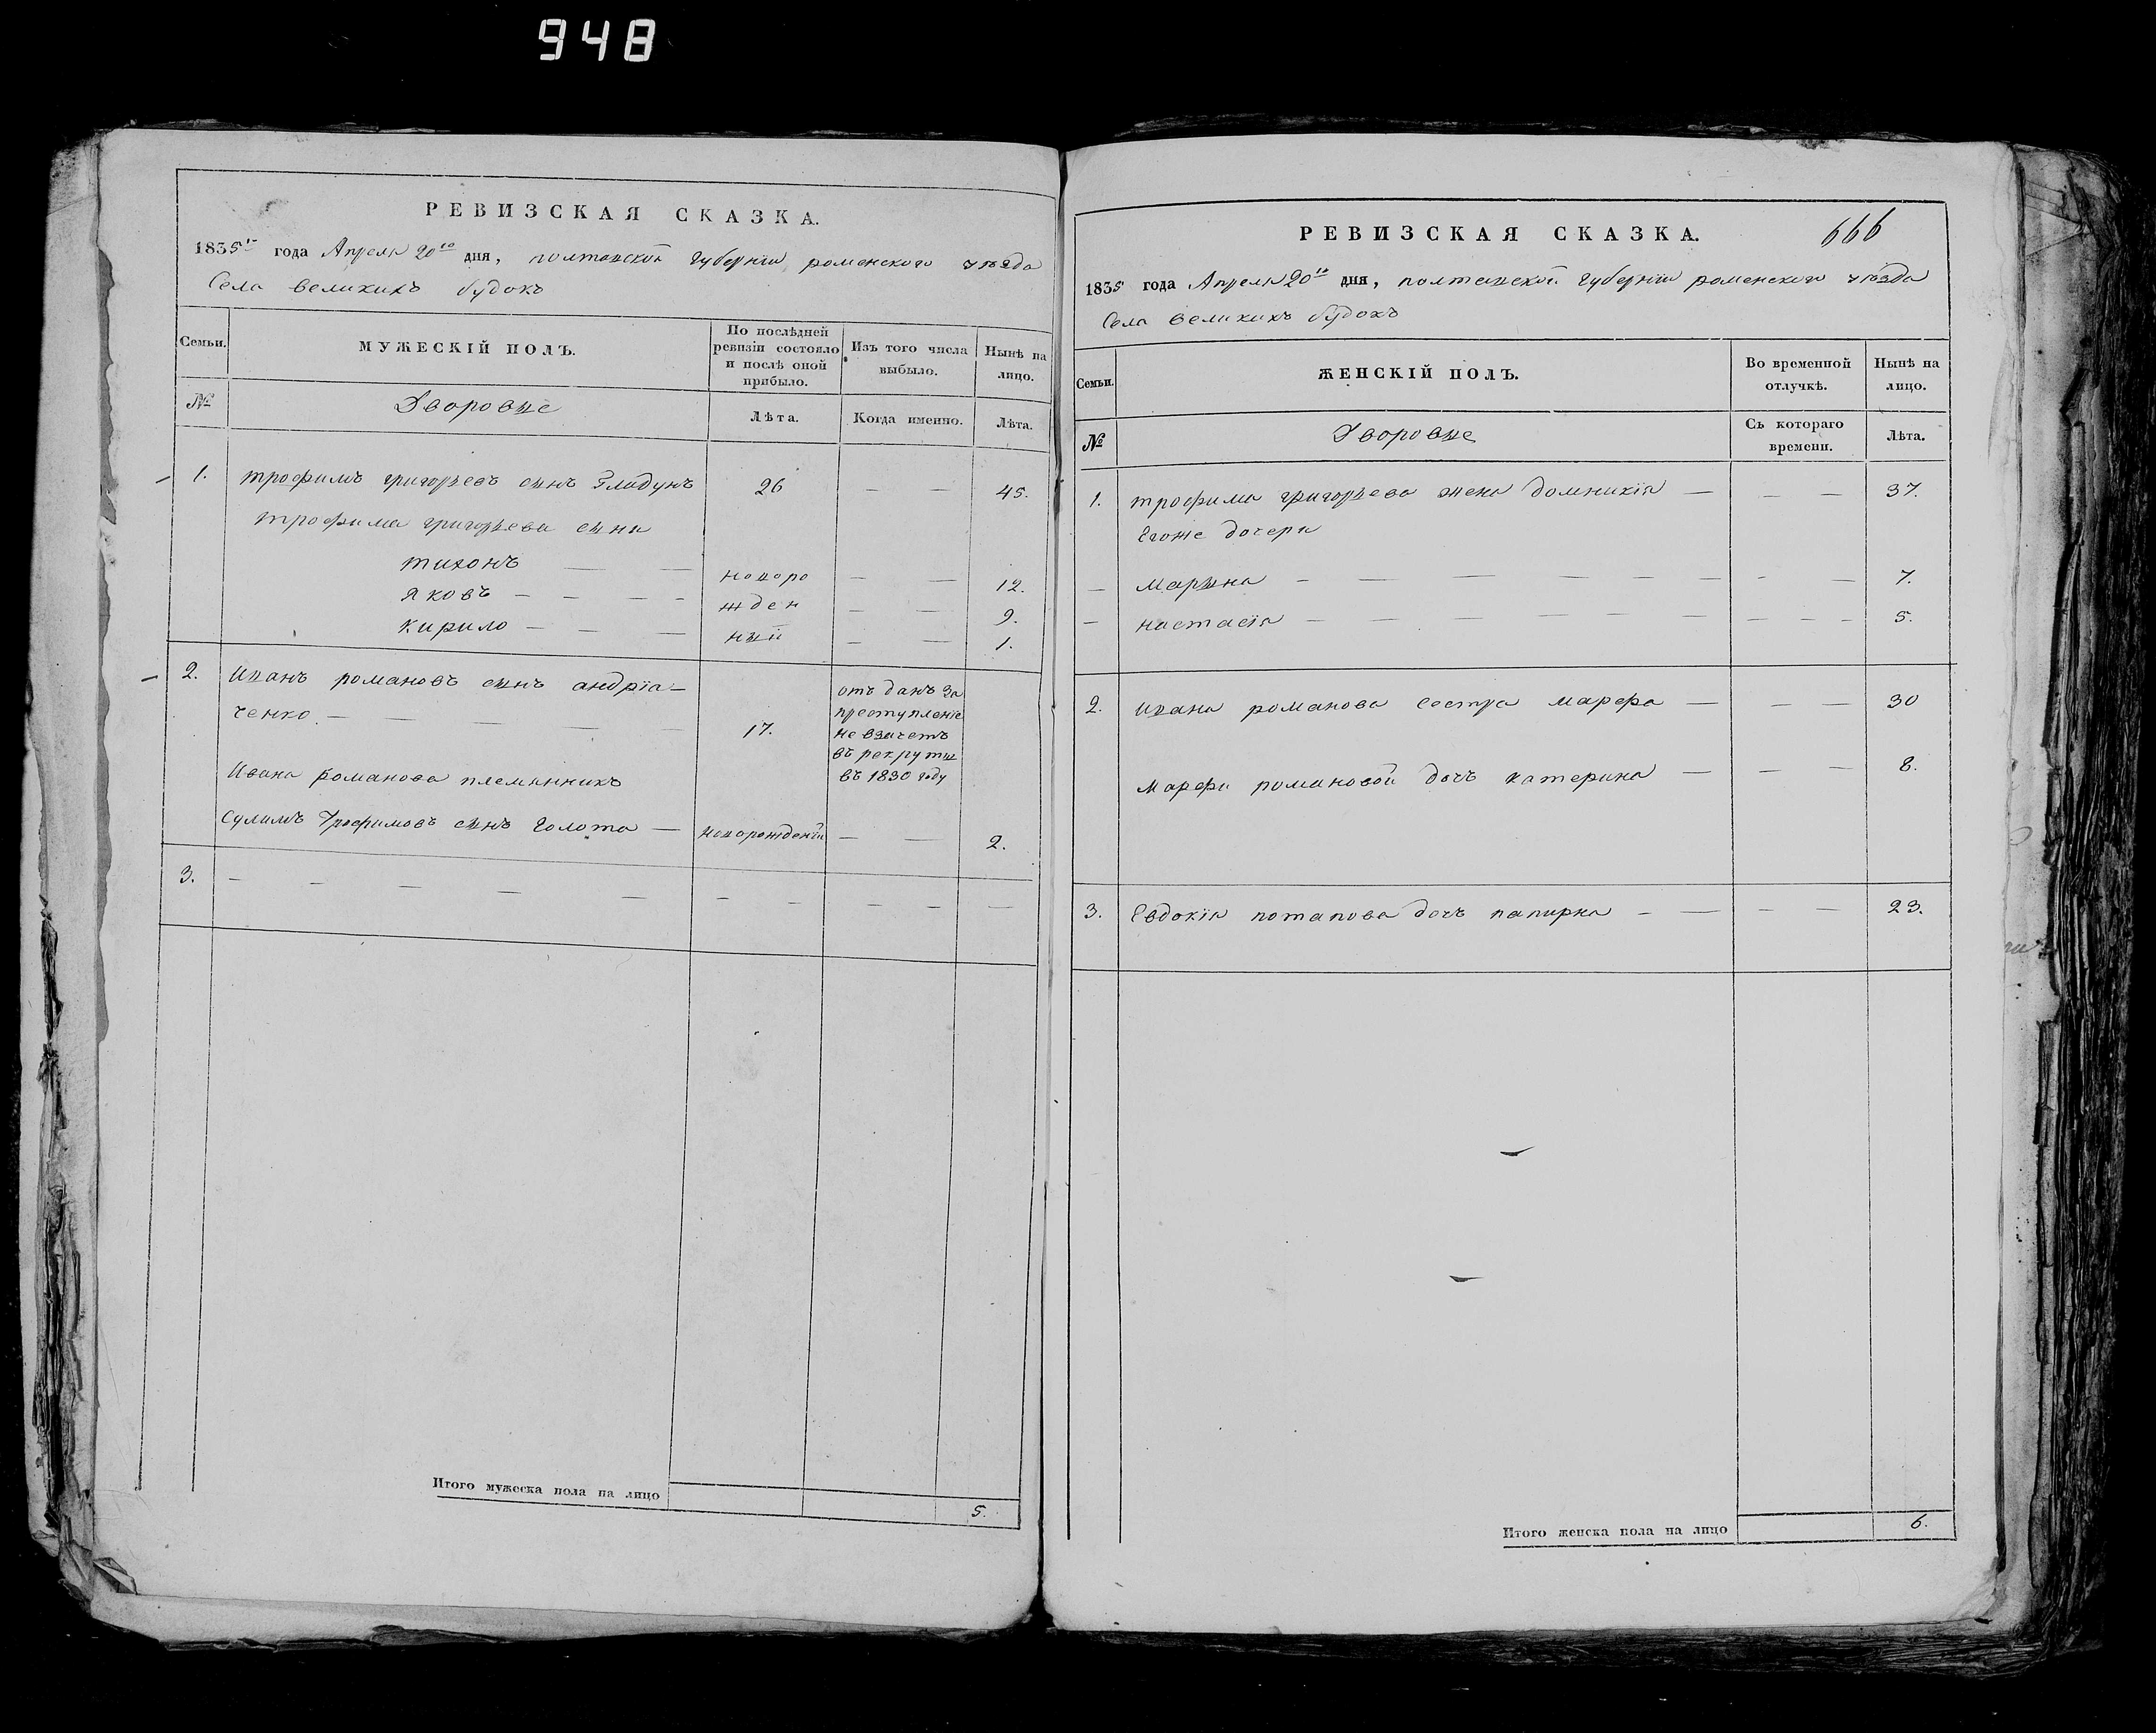 948
РЕВИЗСКАЯ СКАЗКА.
1835го года Апреля 20го дня, полтавской губерніи роменского уѣзда
Села великихъ будокъ
Семьи.
МУЖЕСКІЙ ПОЛЪ.
По послѣдней ревизіи состояло и послѣ оной прибыло.
Изъ того числа выбыло.
Нынѣ на лицо.
№
Дворовые
Лѣта.
Когда именно.
Лѣта.
1. трофимъ григорьевъ сынъ Гладунъ 26 — — 45.
трофима григорьева сыны
тихонъ — — новоро — — 12.
яковъ — — — — жден — — 9.
кирило — — — ный — — 1.
2. Иванъ романовъ сынъ андрія-
ченко. — — — — — 17.
отъ данъ за
преступленіе
не взачетъ
въ рекруты
въ 1830 году
Ивана романова племянникъ
Сулимъ Трофимовъ сынъ Голота — новорожденый — — 2.
3. — — — — — — — — — —
Итого мужеска пола на лицо 5.
666
РЕВИЗСКАЯ СКАЗКА.
1835 года Апреля 20го дня, полтавской губерніи роменского уѣзда
Села великихъ будокъ
Семьи.
ЖЕНСКІЙ ПОЛЪ.
Во временной отлучкѣ.
Нынѣ на лицо.
№
Дворовые
Съ котораго времени.
Лѣта.
1. трофима григорьева жена домникія — — — 37.
Егоже дочери
— марына — — — — — — — 7.
— настасія — — — — — — — — 5.
2. Ивана романова сестра марфа — — — 30
Марфы романовой дочь катерина — — — 8.
3. Евдокія потапова дочь папирна — — — — 23.
Итого женска пола на лицо 6.